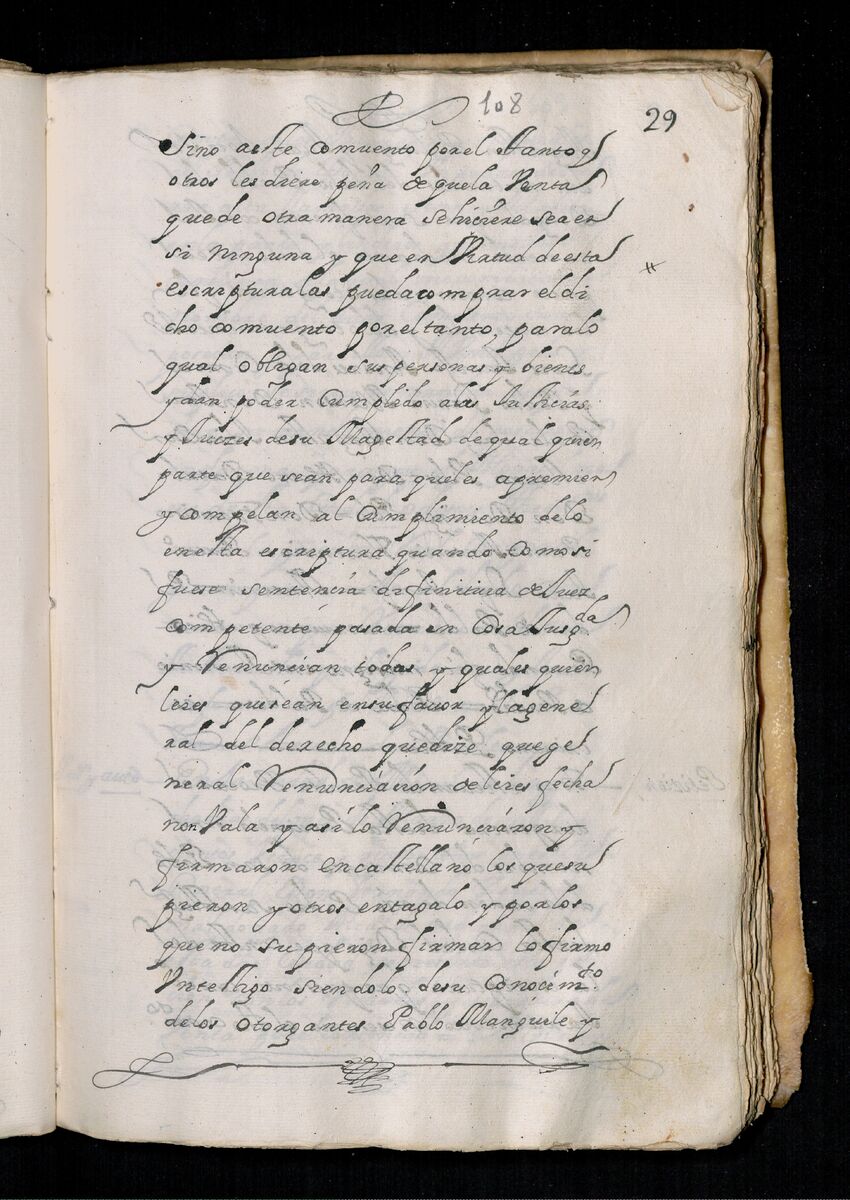 108
29
Sino aeste comuento por el tanto q
otros les diere pena de que la Venta
que de otra manera se hiciere sea en
si ninguna y que en Virtud de esta
escriptura las pueda comprar el di
cho comuento por el tanto, para lo
qual obligan sus personas y bienes
y dan poder Cumplido a las Justicias
y Juezes de su Magestad de qual quier
parte que sean para que les apremien
y compelan al Cumplimiento de lo
en esta escriptura quando como si
fuese sentencia difinitiua de Juez
competente pasada en Cosa Jusgda
y Renuncian todas y quales quier
leies que sean en su fauor y la gene
ral del derecho que dize que ge
neral Renunciación de leies fecha
non Vala y así lo Renunciáron y
firmaron en castellano los que su
pieron y otros en tagalo y por los
que no supieron firmar lo firmo
Vn testigo siendolo de su Conocimto
de los otorgantes Pablo Manguile y